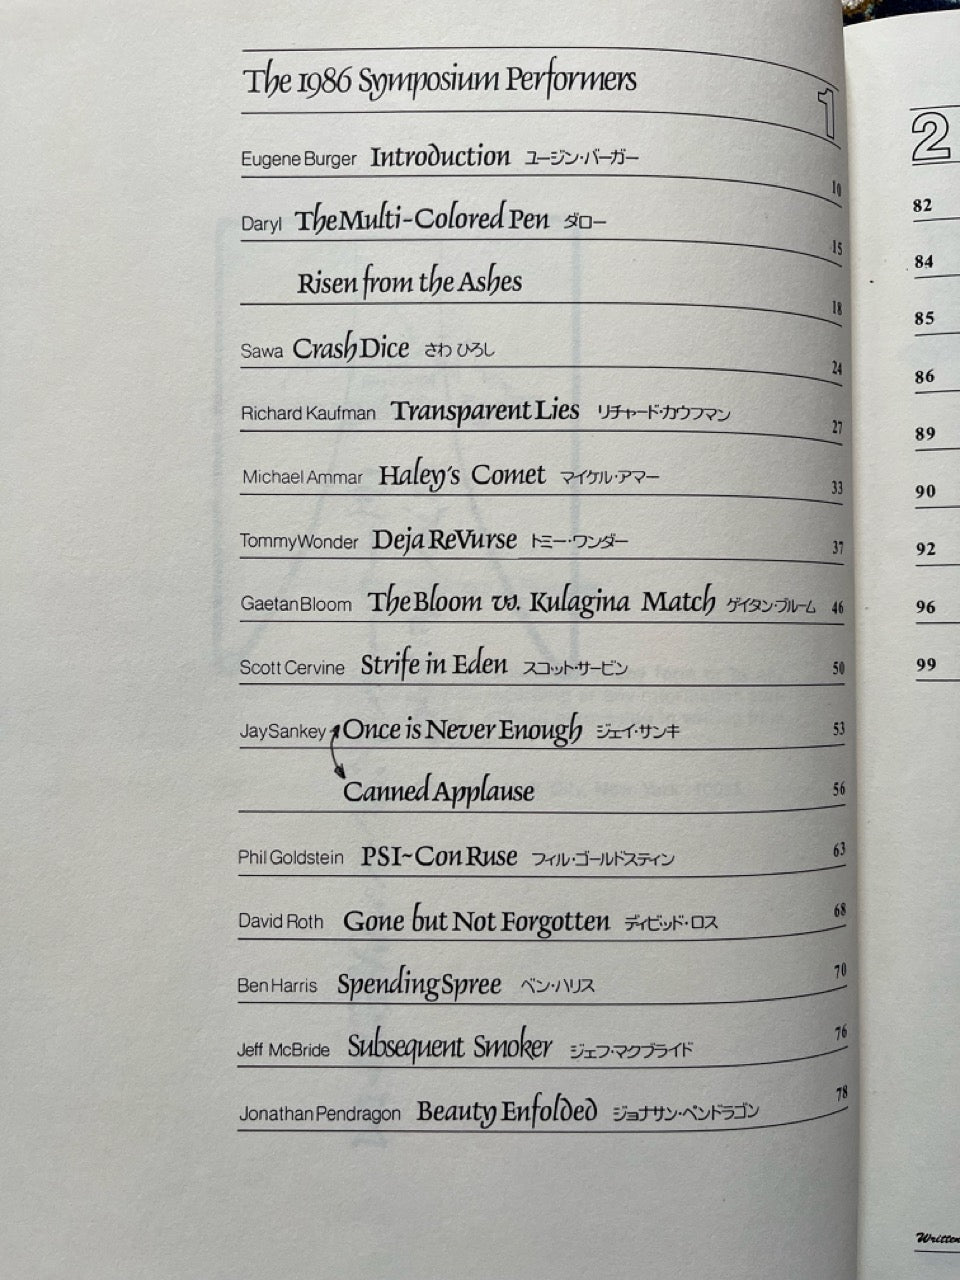 The 1986 Symposium Performers
1
Eugene Burger Introduction ユージン・バーガー 10
Daryl The Multi-Colored Pen ダロー 15
Risen from the Ashes 18
Sawa Crash Dice さわ ひろし 24
Richard Kaufman Transparent Lies リチャード・カウフマン 27
Michael Ammar Haley's Comet マイケル・アマー 33
Tommy Wonder Deja ReVurse トミー・ワンダー 37
Gaetan Bloom The Bloom vs. Kulagina Match ゲイタン・ブルーム 46
Scott Cervine Strife in Eden スコット・サービン 50
Jay Sankey Once is Never Enough ジェイ・サンキ 53
Canned Applause 56
Phil Goldstein PSI~Con Ruse フィル・ゴールドスティン 63
David Roth Gone but Not Forgotten ディビッド・ロス 68
Ben Harris Spending Spree ベン・ハリス 70
Jeff McBride Subsequent Smoker ジェフ・マクブライド 76
Jonathan Pendragon Beauty Enfolded ジョナサン・ペンドラゴン 78
2
82
84
85
86
89
90
92
96
99
Written